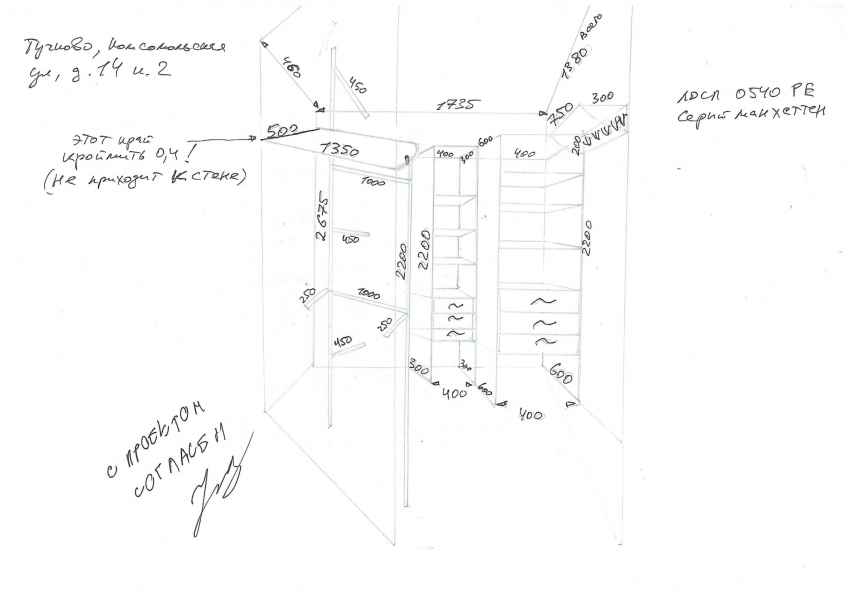 Тучково, Комсомольская
ул, д. 14 к. 2
460
450
1735
1380
всего
750
300
ЛДСП 0540 РЕ
Серый манхеттен
этот край
кромить 0,4!
(не приходит к стене)
500
1350
1000
400
300
600
400
200
2675
450
2200
2200
2200
250
1000
250
450
300
400
300
600
400
600
с проектом
согласен